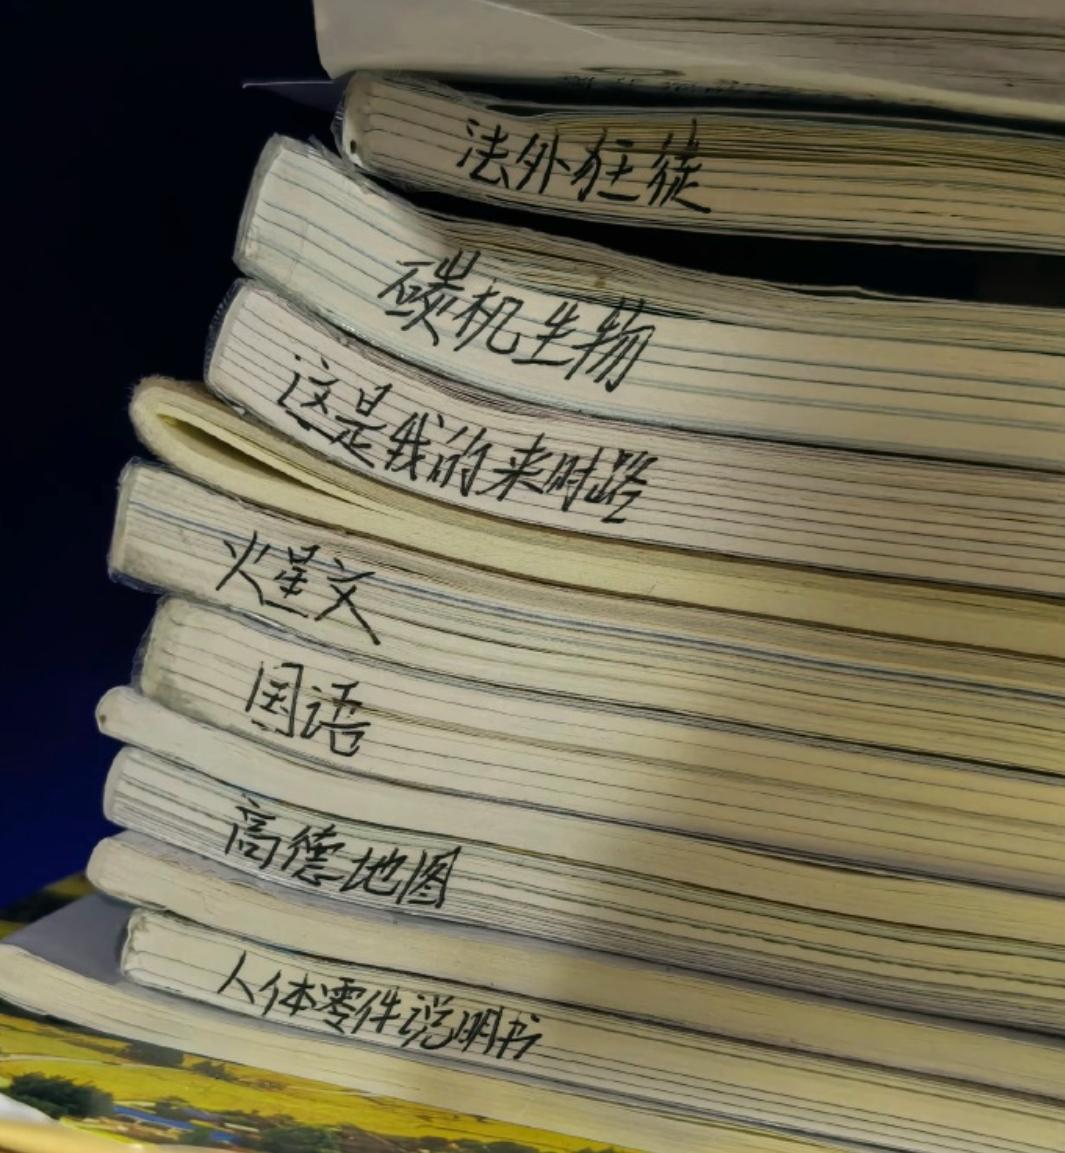 法外狂徒
碳机生物
这是我的来时路
火星文
国语
高德地图
人体零件说明书